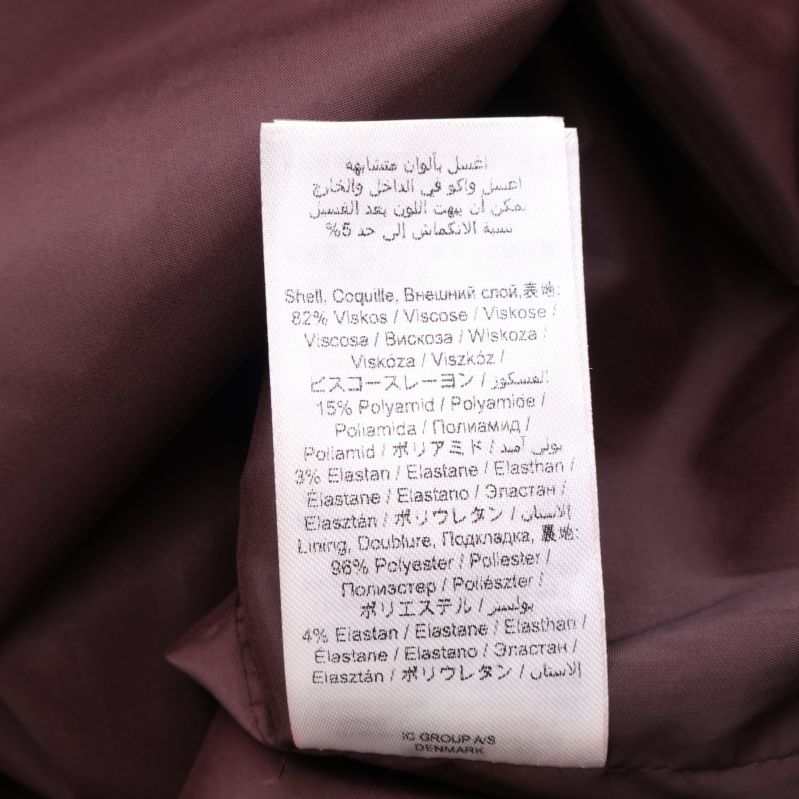 اغسل بألوان متشابهه
اغسل واكو في الداخل والخارج
يمكن أن يبهت اللون بعد الغسيل
نسبة الانكماش إلى حد 5%
Shell, Coquille, Внешний слой,表地:
82% Viskos / Viscose / Viskose /
Viscosa / Вискоза / Wiskoza /
Viskóza / Viszkóz /
ビスコースレーヨン / الفسكوز
15% Polyamid / Polyamide /
Poliamida / Полиамид /
Poliamid / ポリアミド / بولي أميد
3% Elastan / Elastane / Elasthan /
Élastane / Elastano / Эластан /
Elasztán / ポリウレタン / الاستان
Lining, Doublure, Подкладка, 裏地:
96% Polyester / Poliester /
Полиэстер / Poliészter /
ポリエステル / بولستر
4% Elastan / Elastane / Elasthan /
Élastane / Elastano / Эластан /
Elasztán / ポリウレタン / الاستان
IC GROUP A/S
DENMARK